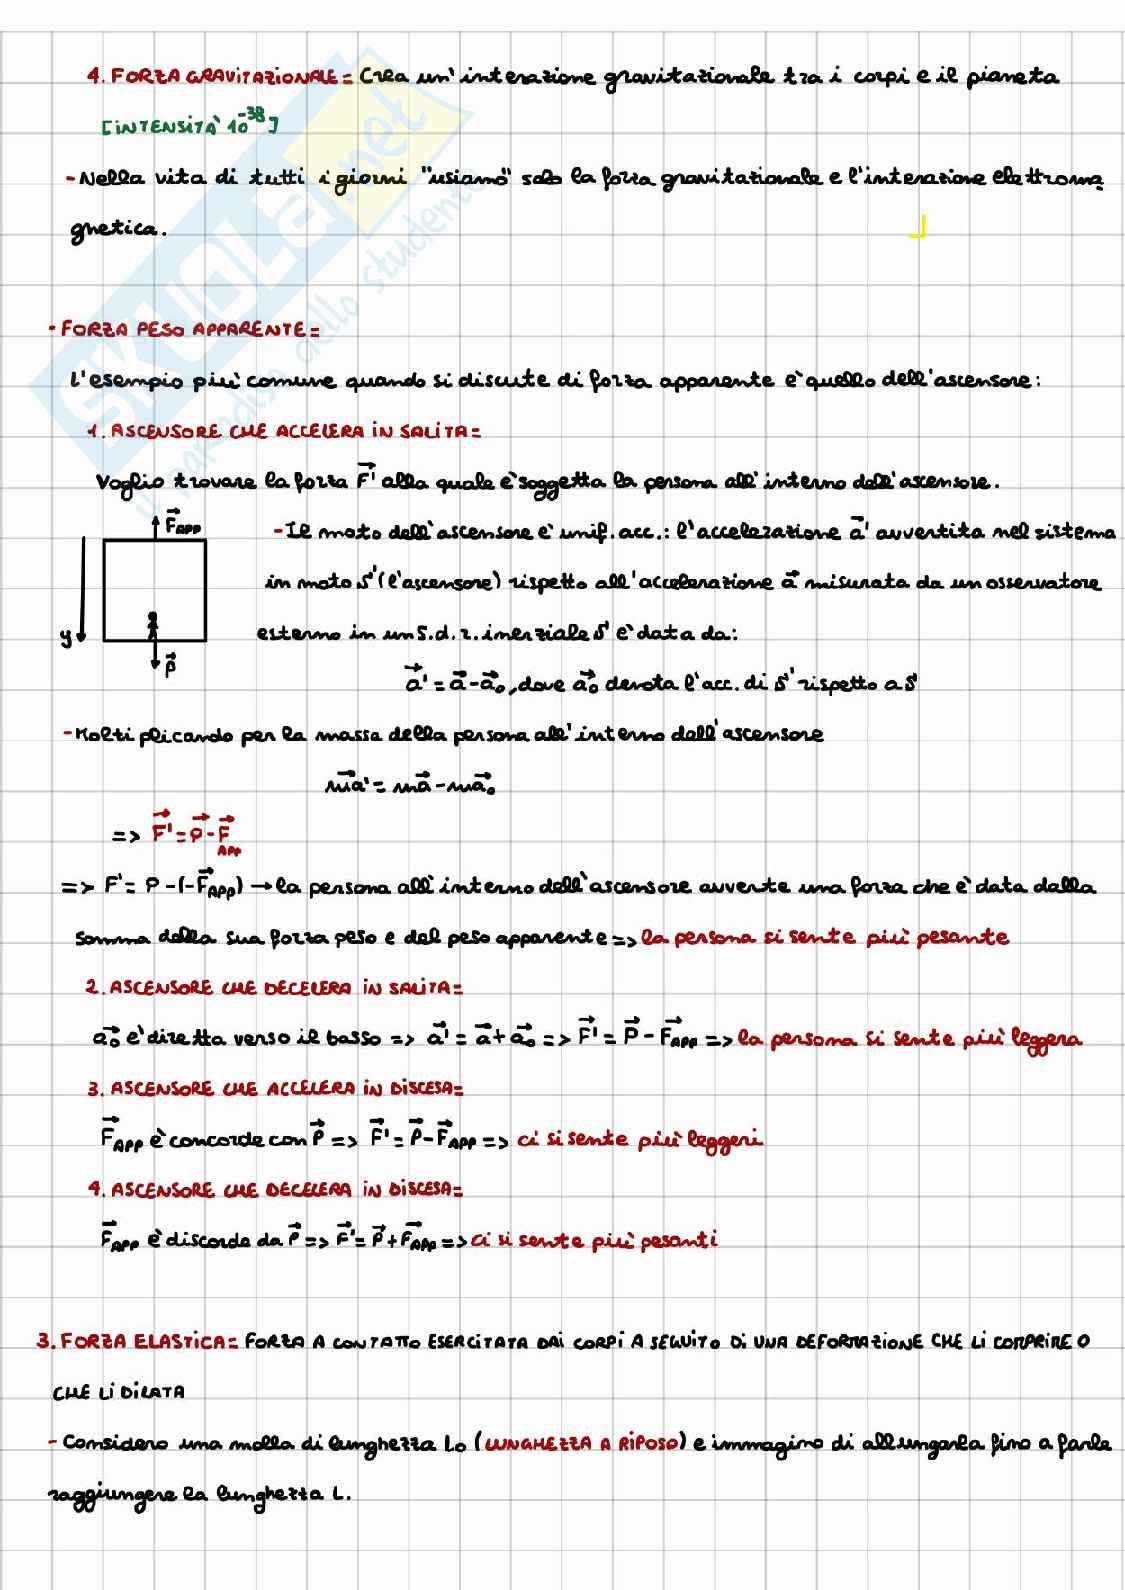 4. FORZA GRAVITAZIONALE = Crea un' interazione gravitazionale tra i corpi e il pianeta
[INTENSITA' 10^-38]
- Nella vita di tutti i giorni "usiamo" solo la forza gravitazionale e l'interazione elettroma
gnetica.
- FORZA PESO APPARENTE =
L'esempio più comune quando si discute di forza apparente è quello dell'ascensore:
1. ASCENSORE CHE ACCELERA IN SALITA =
Voglio trovare la forza F⃗' alla quale è soggetta la persona all'interno dell'ascensore.
F⃗APP
y
P⃗
- Il moto dell'ascensore è unif. acc.: l'accelerazione a⃗' avvertita nel sistema
in moto S' (l'ascensore) rispetto all'accelerazione a⃗ misurata da un osservatore
esterno in un S.d.r. inerziale S è data da:
a⃗' = a⃗ - a⃗₀, dove a⃗₀ denota l'acc. di S' rispetto a S
- Moltiplicando per la massa della persona all'interno dell'ascensore
ma⃗' = ma⃗ - ma⃗₀
=> F⃗' = P⃗ - F⃗APP
=> F' = P - (-F⃗APP) → la persona all'interno dell'ascensore avverte una forza che è data dalla
somma della sua forza peso e del peso apparente => la persona si sente più pesante
2. ASCENSORE CHE DECELERA IN SALITA =
a⃗₀ è diretta verso il basso => a⃗' = a⃗ + a⃗₀ => F⃗' = P⃗ - F⃗APP => la persona si sente più leggera
3. ASCENSORE CHE ACCELERA IN DISCESA =
F⃗APP è concorde con P⃗ => F⃗' = P⃗ - F⃗APP => ci si sente più leggeri
4. ASCENSORE CHE DECELERA IN DISCESA =
F⃗APP è discorde da P⃗ => F⃗' = P⃗ + F⃗APP => ci si sente più pesanti
3. FORZA ELASTICA = FORZA A CONTATTO ESERCITATA DAI CORPI A SEGUITO DI UNA DEFORMAZIONE CHE LI COMPRIME O
CHE LI DILATA
- Considero una molla di lunghezza L₀ (LUNGHEZZA A RIPOSO) e immagino di allungarla fino a farle
raggiungere la lunghezza L.
SKUOLA.net
il paradiso dello studente